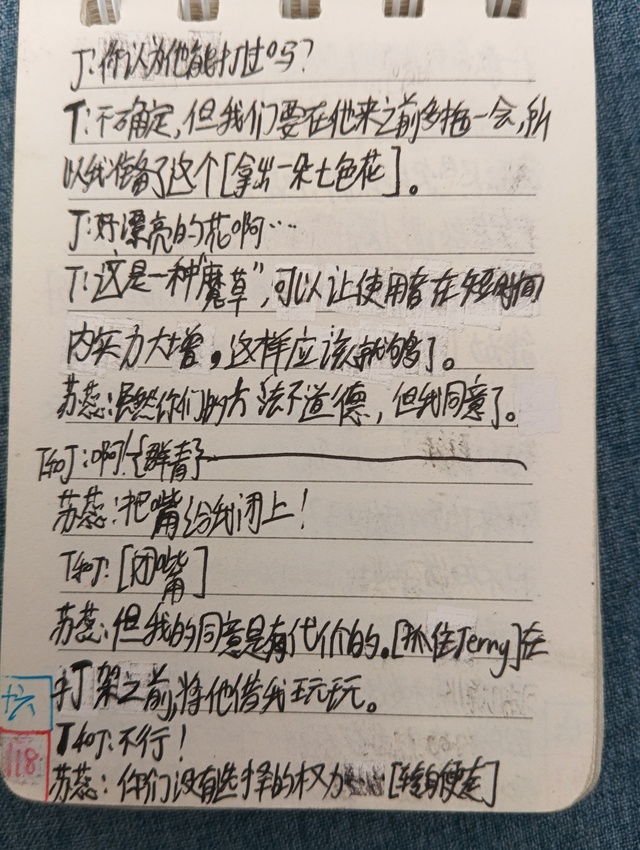 J:你认为他能打过吗?
T:不确定,但我们要在他来之前多拖一会,所
以我准备了这个[拿出一朵七色花]。
J:好漂亮的花啊…
T:这是一种"魔草",可以让使用者在短时间
内实力大增,这样应该就够了。
苏蕊:虽然你们的方法不道德,但我同意了。
T和J:啊!{群青}
苏蕊:把嘴给我闭上!
T和J:[闭嘴]
苏蕊:但我的同意是有代价的。[抓住Jerry]在
打架之前,将他借我玩玩。
T和J:不行!
苏蕊:你们没有选择的权力 [转身便走]
十六
118